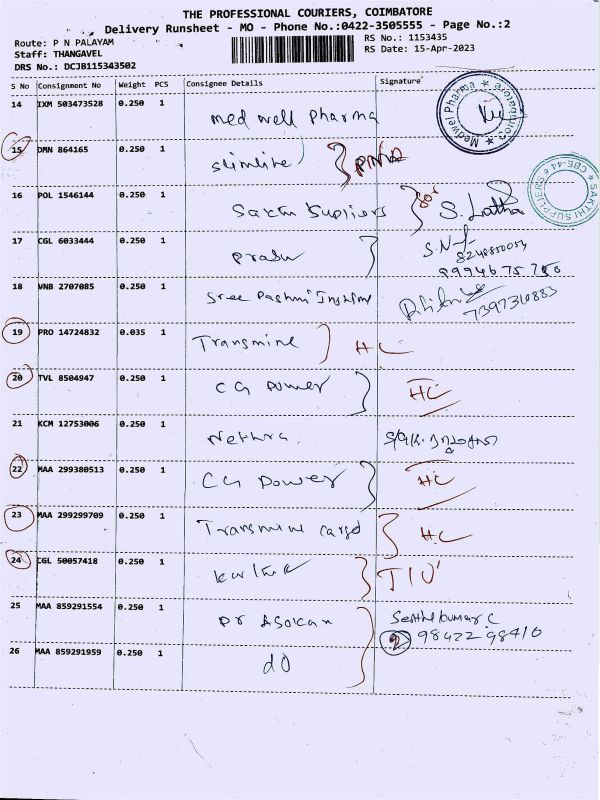 THE PROFESSIONAL COURIERS, COIMBATORE
Delivery Runsheet - MO - Phone No.:0422-3505555 - Page No.:2
Route: P N PALAYAM
RS No.: 1153435
Staff: THANGAVEL
RS Date: 15-Apr-2023
DRS No.: DCJB115343502
S No Consignment No Weight PCS Consignee Details Signature
14 IXM 503473528 0.250 1 med well pharma
Medwel Pharma * Coimbatore *
15 DMN 864165 0.250 1 slimlite
16 POL 1546144 0.250 1 Sakthi Suppliers S. Latha
* SAKTHI SUPPLIERS * CBE-44
17 CGL 6033444 0.250 1 Prabu
8240850054
9994675780
18 VNB 2707085 0.250 1 Sree
7397310883
19 PRO 14724832 0.035 1 Transmine HC
20 TVL 8504947 0.250 1 CG Power HC
21 KCM 12753006 0.250 1 Nethra
22 MAA 299380513 0.250 1 CG Power HC
23 MAA 299299709 0.250 1 Transmine Cargo HC
24 CGL 50057418 0.250 1
25 MAA 859291554 0.250 1 Dr Asokan Senthil kumar C
2 98422 98410
26 MAA 859291959 0.250 1 do